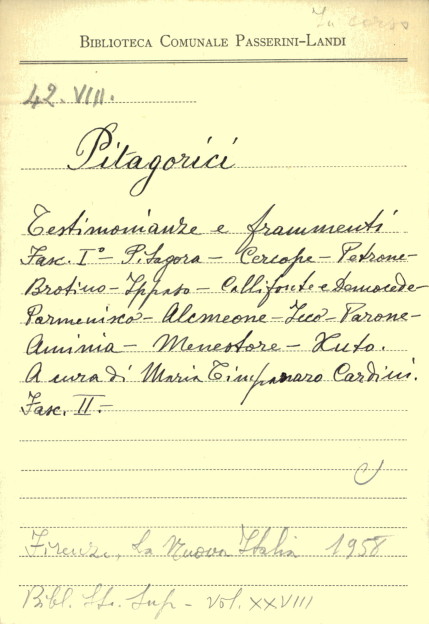 In corso
BIBLIOTECA COMUNALE PASSERINI-LANDI
42. VIII.
Pitagorici
Testimonianze e frammenti
Fasc. I° - Pitagora - Cercope - Petrone -
Brotino - Ippaso - Callifonte e Democede -
Parmenisco - Alcmeone - Icco - Parone -
Aminia - Menestore - Xuto.
A cura di Maria Timpanaro Cardini.
Fasc. II. -
Firenze, La Nuova Italia 1958
Bibl. St. Sup - vol. XXVIII